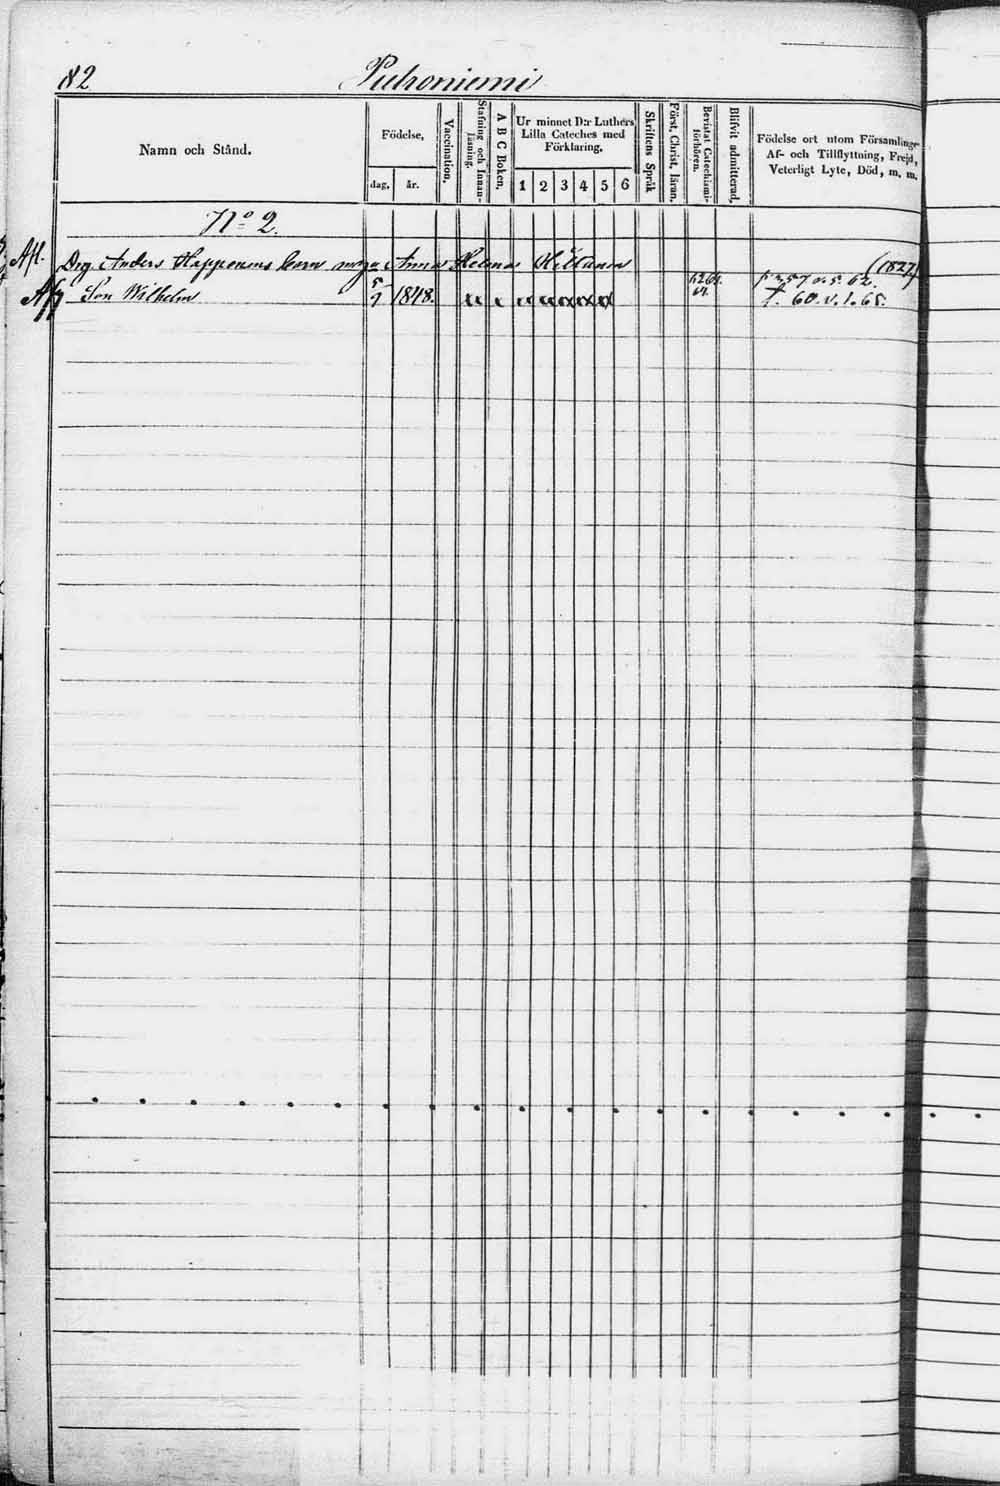 82 Puhoniemi
Namn och Stånd.
Födelse,
dag. år.
Vaccination.
Stafning och Innanläsning.
A B C Boken.
Ur minnet D:r Luthers
Lilla Cateches med
Förklaring.
1 2 3 4 5 6
Skriftens Språk
Först. Christ. läran.
Bevistat Catechismiförhören.
Blifvit admitterad.
Födelse ort utom Församlingen
Af- och Tillflyttning, Frejd,
Veterligt Lyte, Död, m. m.
No 2.
Afl. Drg. Anders Happonens barn m Anna Helena Hiltunen (1827)
Son Wilhelm 5/7 1848.
60. v. 1. 65.